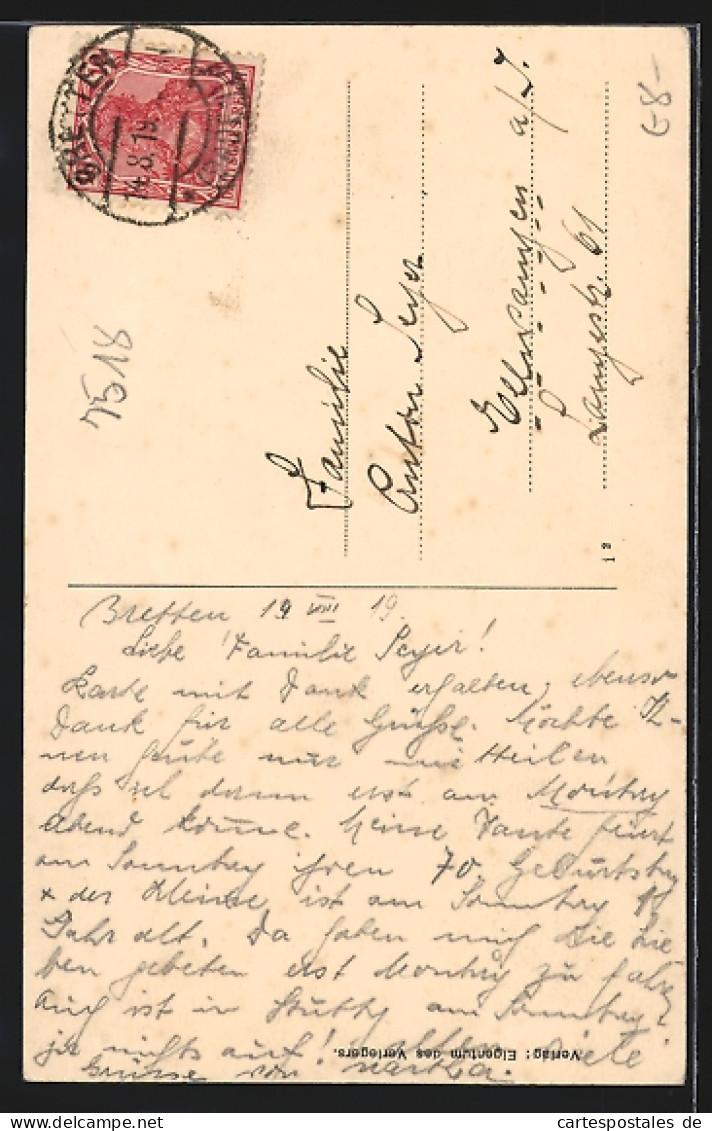 BRETTEN
14.8.19
68-
7518
Familie
Anton Seyer
Ellwangen a/J.
Langestr. 61
1 2
Bretten 19 VIII 19.
Liebe Familie Seyer!
Karte mit Dank erhalten, ebenso
Dank für alle Grüße. Möchte Ih-
nen heute nur mitteilen
daß ich dann erst am Montag
Abend komme. Meine Tante feiert
am Sonntag ihren 70. Geburtstag
+ der Kleine ist am Sonntag
Jahr alt. Da haben mich die Lie
ben gebeten erst Montag zu fahren
Auch ist in Stuttg am Sonntag
ja nichts auf! Allen Viele
Grüsse von Martha.
Verlag: Eigentum des Verlegers.
cartespostales de
cartespostales de